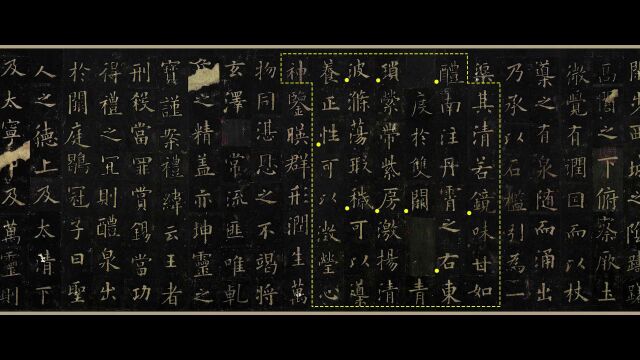 西城之陰躊
高閣之下俯察厥土
微覺有潤因而以杖
導之有泉隨而涌出
乃承以石檻引為一
渠其清若鏡味甘如
醴南注丹霄之右東
度於雙闕青
瑣縈帶紫房激揚清
波滌蕩瑕穢可以導
養正性可以澂瑩心
神鑒暎群形潤生萬
物同湛恩之不竭將
玄澤常流匪唯乾
之精蓋亦坤靈之
寶謹案禮緯云王者
刑殺當罪賞錫當功
得禮之宜則醴泉出
於闕庭鶡冠子曰聖
人之德上及太清下
及太寧及萬靈則